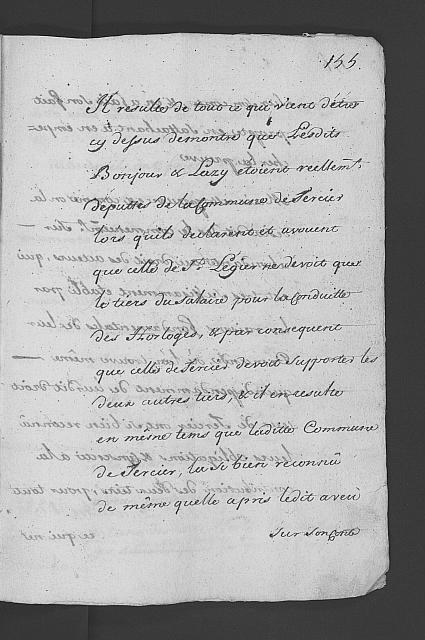 155.
Il resulte de tout ce qui vient d'être
cy dessus demontré que Lesdits
Bonjour & Luzy etoient reellemt.
députés de la Commune de Tercier
lors quils declarent et avouent
que celle de St. Legier ne devoit que
le tiers du Salaire pour la Conduitte
des Horloges, & par consequent
que celle de Tercier devoit Supporter les
deux autres tiers, & il en resulte
en même tems que laditte Commune
de Tercier, la Si bien reconnû
de même quelle a pris ledit aveu
Sur Son